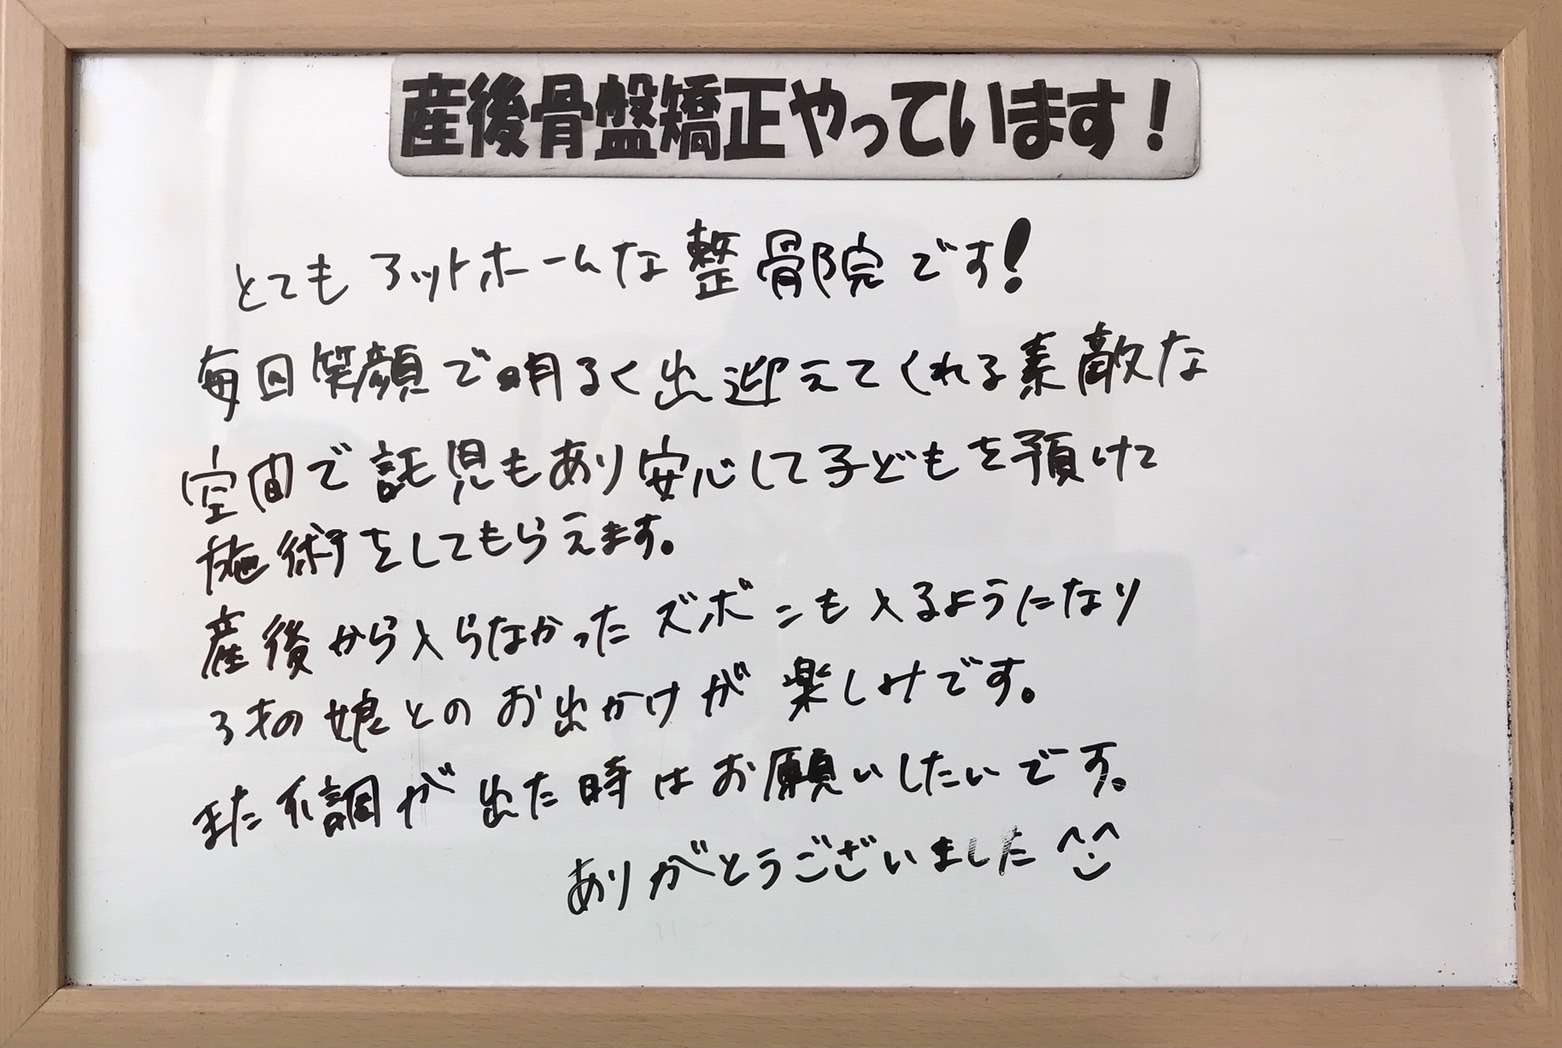 産後骨盤矯正やっています！
とてもアットホームな整骨院です！
毎回笑顔で明るく出迎えてくれる素敵な
空間で託児もあり安心して子どもを預けて
施術をしてもらえます。
産後から入らなかったズボンも入るようになり
3才の娘とのお出かけが楽しみです。
また不調が出た時はお願いしたいです。
ありがとうございました^^